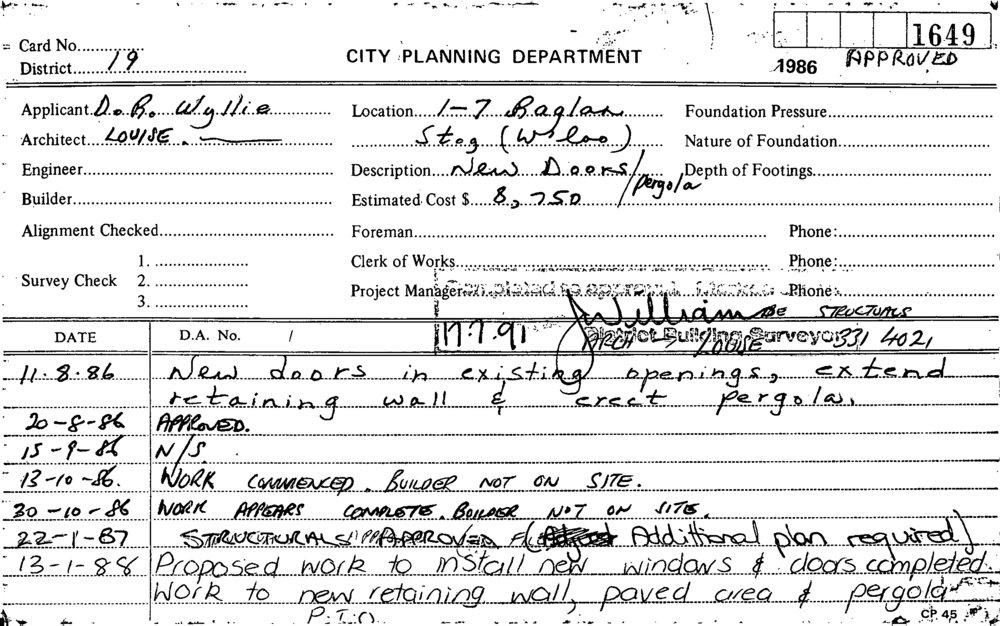 1649
Card No.
District 19
CITY PLANNING DEPARTMENT
1986 APPROVED
Applicant D. R. Wyllie
Location 1-7 Raglan
Foundation Pressure
Architect LOUISE.
Stog (W'loo)
Nature of Foundation
Engineer
Description New Doors/pergola
Depth of Footings
Builder
Estimated Cost $ 8,750
Alignment Checked
Foreman
Phone:
Survey Check
1.
Clerk of Works
Phone:
2.
Project Manager
Phone:
3.
STRUCTURALS
DATE
D.A. No. /
17.7.91
District Building Surveyor
ARCH LOUISE 331 4021
11.8.86 New doors in existing openings, extend
retaining wall & erect pergola.
20-8-86 APPROVED.
15-9-86 N/S.
13-10-86. WORK COMMENCED. BUILDER NOT ON SITE.
30-10-86 WORK APPEARS COMPLETE. BUILDER NOT ON SITE.
22-1-87 STRUCTURALS APPROVED (Additional plan required)
13-1-88 Proposed work to install new windows & doors completed.
Work to new retaining wall, paved area & pergola
P.T.O
CP 45